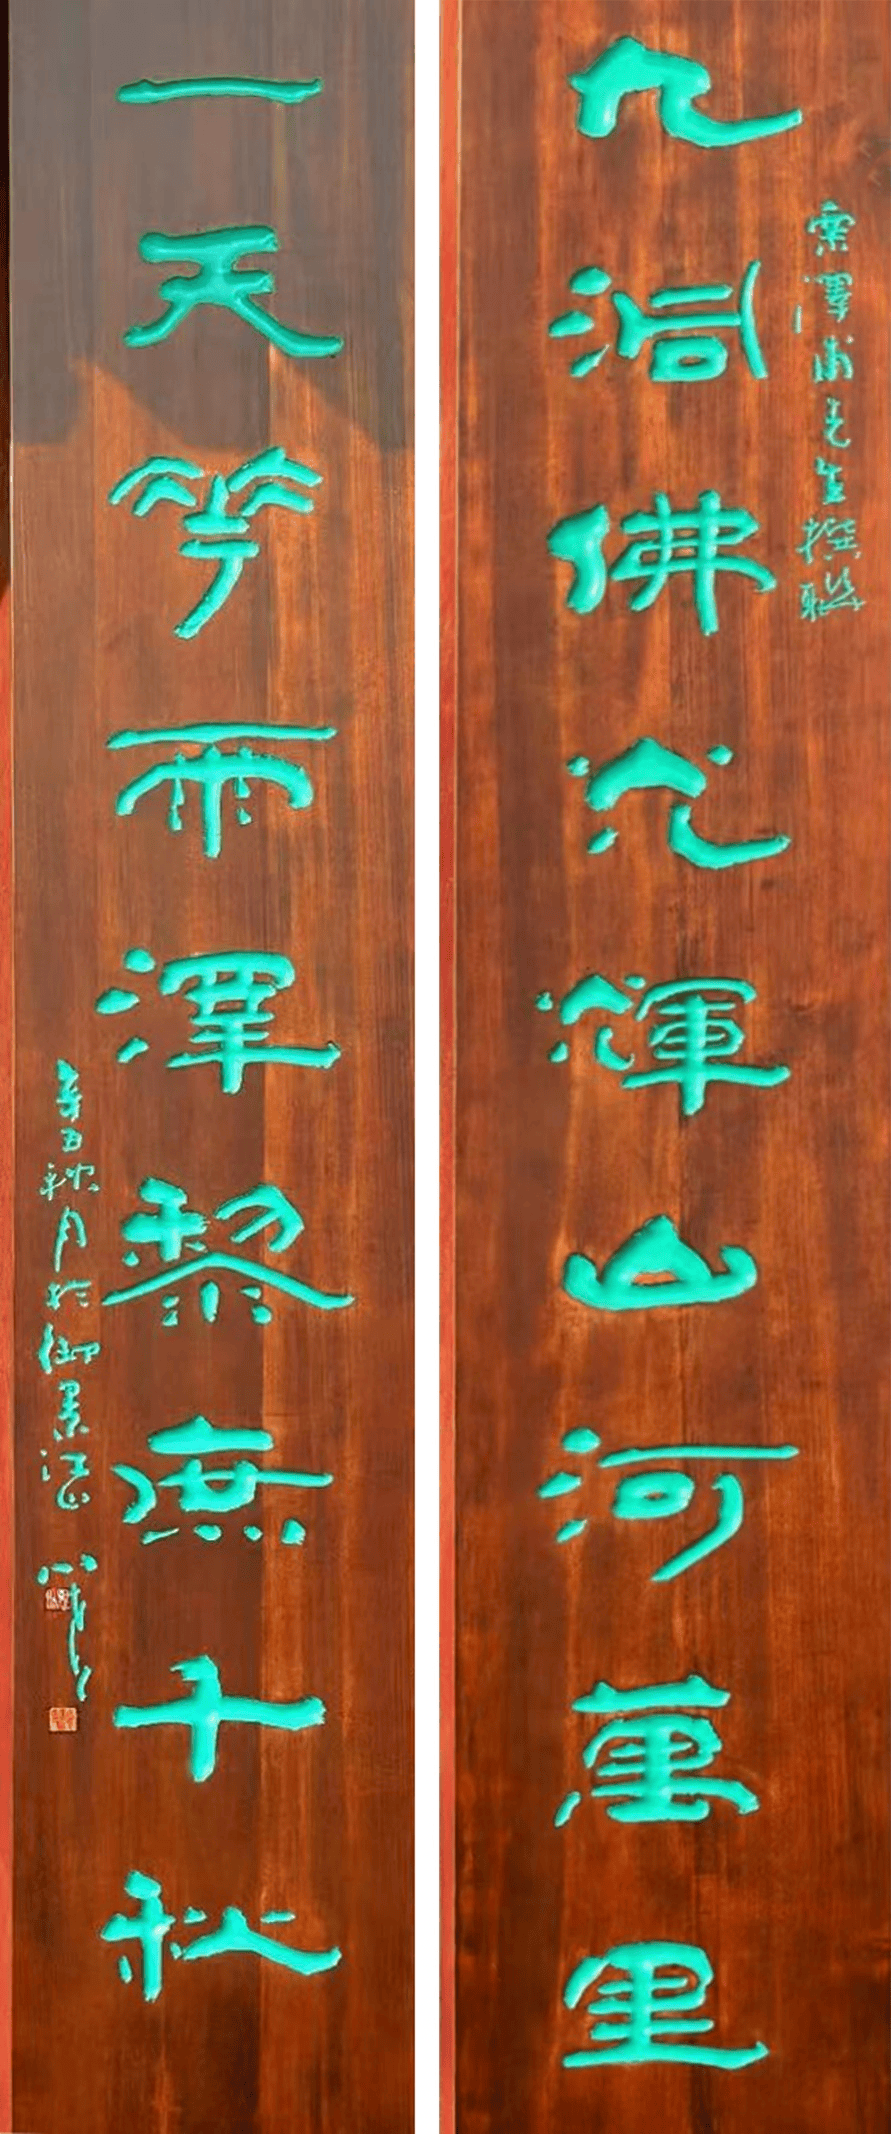 栗澤甫先生撰聯
九洞佛光輝山河萬里
一天花雨澤黎庶千秋
辛丑秋月於御景江山